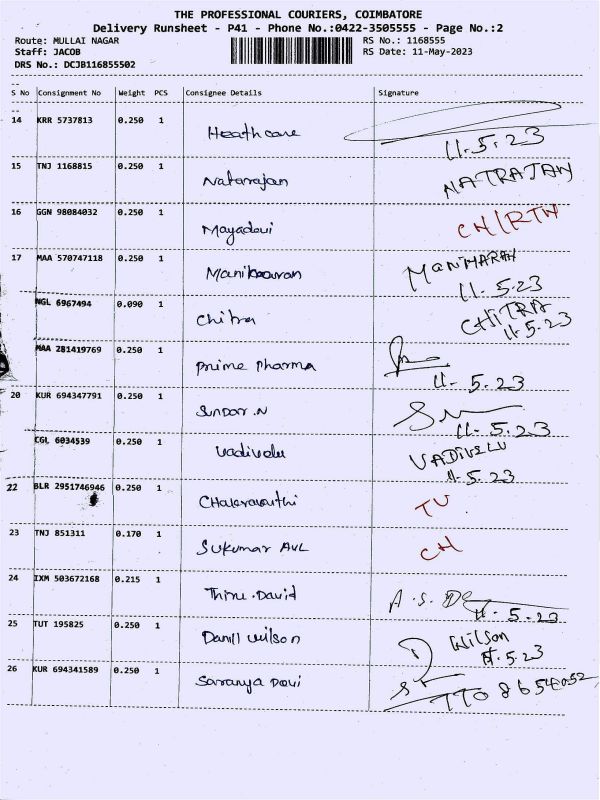 THE PROFESSIONAL COURIERS, COIMBATORE
Delivery Runsheet - P41 - Phone No.:0422-3505555 - Page No.:2
Route: MULLAI NAGAR RS No.: 1168555
Staff: JACOB RS Date: 11-May-2023
DRS No.: DCJB116855502
S No Consignment No Weight PCS Consignee Details Signature
14 KRR 5737813 0.250 1 Heathcare
11.5.23
15 TNJ 1168815 0.250 1 Natarajan NATRAJAN
16 GGN 98084032 0.250 1 Mayadevi CHIRTH
17 MAA 570747118 0.250 1 Manikaaran MANIMARAN
11.5.23
NGL 6967494 0.090 1 Chitra CHITRA
11.5.23
MAA 281419769 0.250 1 Prime Pharma
11-5.23
20 KUR 694347791 0.250 1 SUNDAR.N
11-5.23
CGL 6034539 0.250 1 Vadivelu VADIVELU
11.5.23
22 BLR 2951746946 0.250 1 CHakravarthi TU
23 TNJ 851311 0.170 1 SUKUMAR AVL CH
24 IXM 503672168 0.215 1 Thiru.David A.S.De
11.5.23
25 TUT 195825 0.250 1 Danill wilson Wilson
11.5.23
26 KUR 694341589 0.250 1 Saranya Devi
7708654052